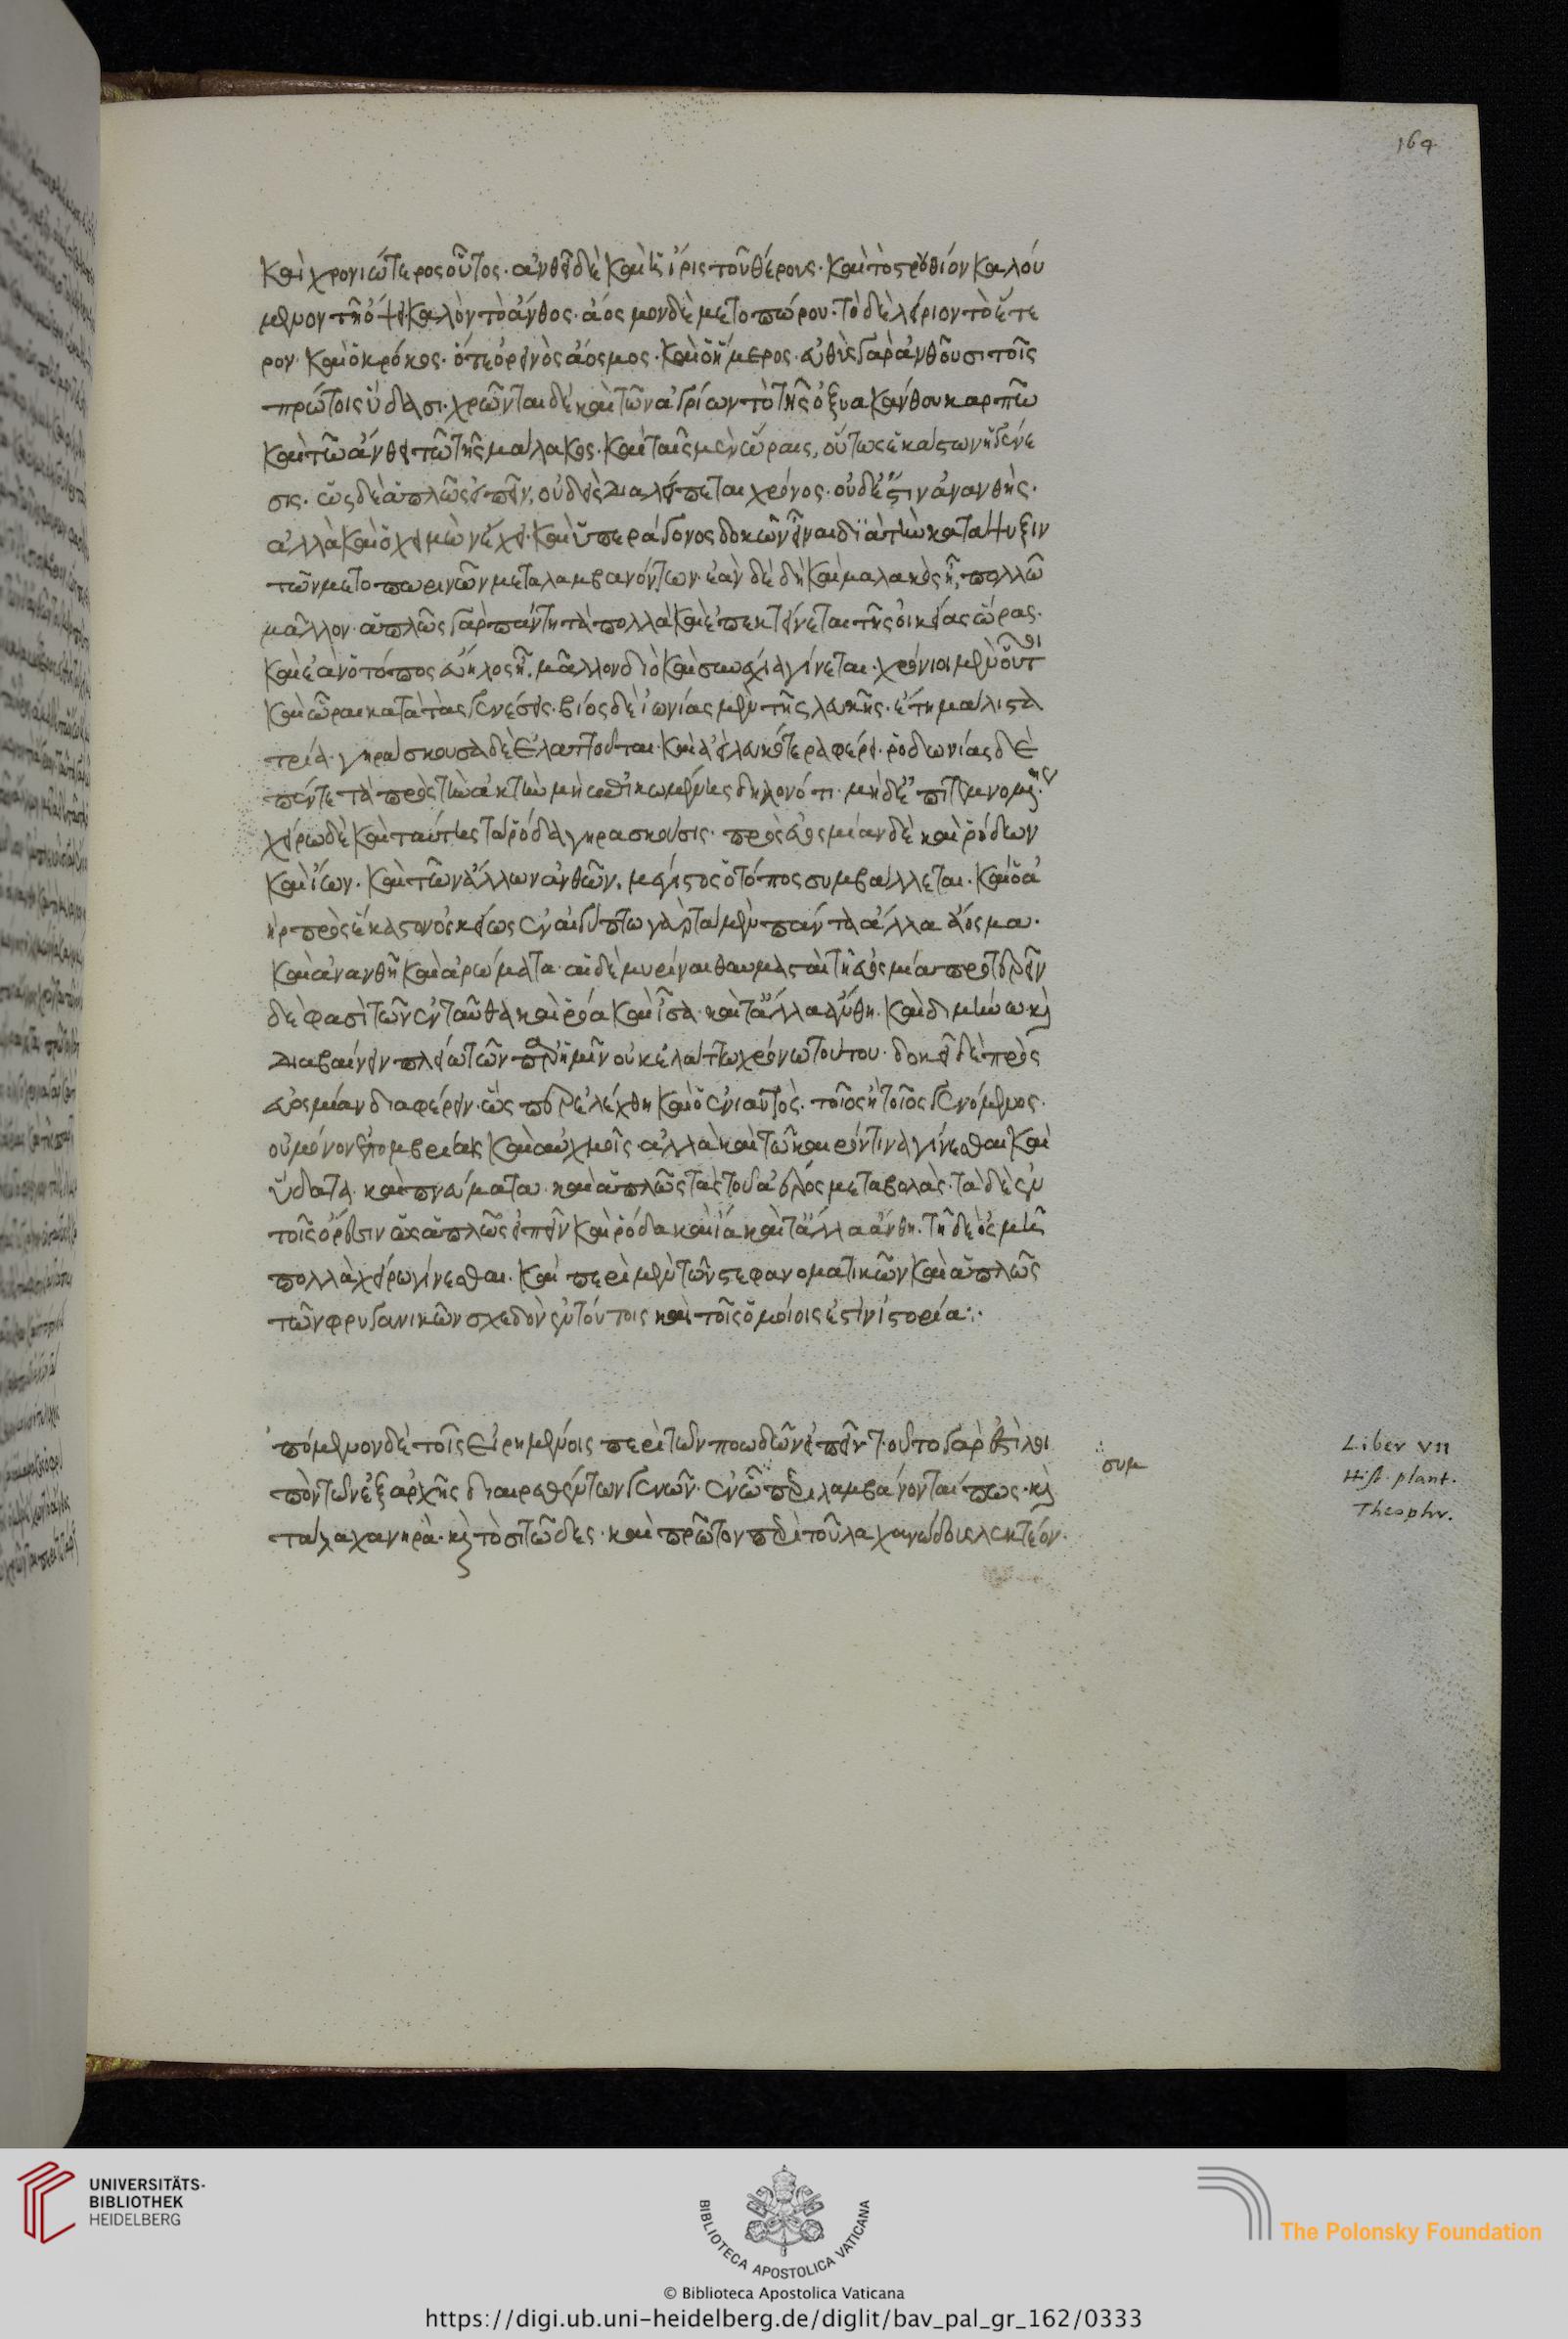 164
καὶ χρονιώτερος οὗτος· ἀνθεῖ δὲ καὶ ἡ ἶρις τοῦ θέρους· καὶ τὸ στρούθιον καλού
μενον τῇ ὄψει καλὸν τὸ ἄνθος· ἄοσμον δὲ μετοπώρου· τὸ δὲ λείριον τὸ ἕτε
ρον· καὶ ὁ κρόκος· ὅ τε ὀρεινὸς ἄοσμος· καὶ ὁ ἥμερος· εὐθὺς γὰρ ἀνθοῦσι τοῖς
πρώτοις ὕδασι· χρῶνται δὲ καὶ τῶν ἀγρίων τὸ τῆς ὀξυακάνθου καρπῶ
καὶ τῶ ἄνθει τῶ τῆς μαλακος· καὶ ταῖς μὲν ὥραις, οὕτως ἑκάστων ἡ γένε
σις· ὡς δὲ ἁπλῶς εἰπεῖν, οὐδεὶς διαλείπεται χρόνος· οὐδέ ἐστιν ἀνανθής·
ἀλλὰ καὶ ὁ χειμὼν ἔχει· καὶ ὕπερ ἄγονος δοκῶν εἶναι διὰ τὴν κατάψυξιν
τῶν μετοπωρινῶν μεταλαμβανόντων· ἐὰν δὲ δὴ καὶ μαλακὸς ἦ, πολλῶ
μᾶλλον· ἁπλῶς γὰρ πάντη τὰ πολλὰ καὶ ἐπεκτείνεται τῆς οἰκείας ὥρας·
καὶ ἐὰν ὁ τόπος εὔηλος ἦ, μᾶλλον διὸ καὶ συνέχεια γίνεται· χρόνιοι μὲν οὖν
καὶ ὧραι κατὰ τὰς γενέσεις· βίος δὲ ἰωνίας μὲν τῆς λευκῆς· ἔτη μάλιστα
τρία· γηράσκουσα δὲ ἐλαττοῦται· καὶ ἀεὶ λευκότερα φέρει· ῥοδωνίας δὲ
πέντε τὰ πρὸς τὴν ἀκτὴν μὴ
χείρω δὲ καὶ ταύτης τὰ ῥόδα γηρασκούσης· πρὸς εὐοσμίαν δὲ καὶ ῥόδων
καὶ ἴων· καὶ τῶν ἄλλων ἀνθῶν, μέγιστος ὁ τόπος συμβάλλεται· καὶ ὁ ἀ
ὴρ πρὸς ἕκαστον οἰκείως ἐν αἰγύπτω γὰρ τὰ μὲν πάντα ἄλλα ἄοσμα·
καὶ ἀνανθῆ καὶ ἀρώματα· αἱ δὲ μυρίναι θαυμασταὶ τῇ εὐοσμία προτερεῖν
δέ φασὶ τῶν ἐνταῦθα καὶ ῥόα καὶ ἶσα· καὶ τἄλλα ἄνθη· καὶ διμήνω κ
διαβαίνειν πλείω τῶν παρ' ἡμῖν οὐκ ἐλάττω χρόνω τούτου· δοκεῖ δὲ πρὸς
εὐοσμίαν διαφέρειν· ὡς πρ ἐλέχθη καὶ ὁ ἐνιαυτὸς· τοῖος ἢ τοῖος γενόμενος·
οὐ μόνον ἐπομβρίαις καὶ αὐχμοῖς ἀλλὰ καὶ τῶ καιρόν τινα γίνεσθαι καὶ
ὕδατα· καὶ πνεύματα· καὶ ἁπλῶς τὰς τοῦ ἀέρος μεταβολὰς· τὰ δὲ ἐν
τοῖς ὄρεσιν ὡς ἁπλῶς εἰπεῖν καὶ ῥόδα καὶ ἴα καὶ τἄλλα ἄνθη· τῇ δὲ ὀσμῇ
πολλὰ χείρω γίνεσθαι· καὶ περὶ μὲν τῶν στεφανοματικῶν καὶ ἁπλῶς
τῶν φρυγανικῶν σχεδὸν ἐν τούτοις καὶ τοῖς ὁμοίοις ἐστὶν ἱστορία:·
πόμενον δὲ τοῖς εἰρημένοις περὶ τῶν ποωδῶν εἰπεῖν· τοῦτο γὰρ ἐστὶ λοι
πὸν τῶν ἐξ ἀρχῆς διαιρεθέντων γενῶν· ἐν ὧ περιλαμβάνονταί πως· κ
τὰ λαχανηρὰ· κ τὸ σιτῶδες· καὶ πρῶτον περὶ τοῦ λαχανώδους λεκτέον·
συμ
Liber VII
Hist. plant.
Theophr.
UNIVERSITÄTS-
BIBLIOTHEK
HEIDELBERG
BIBLIOTECA APOSTOLICA VATICANA
The Polonsky Foundation
© Biblioteca Apostolica Vaticana
https://digi.ub.uni-heidelberg.de/diglit/bav_pal_gr_162/0333